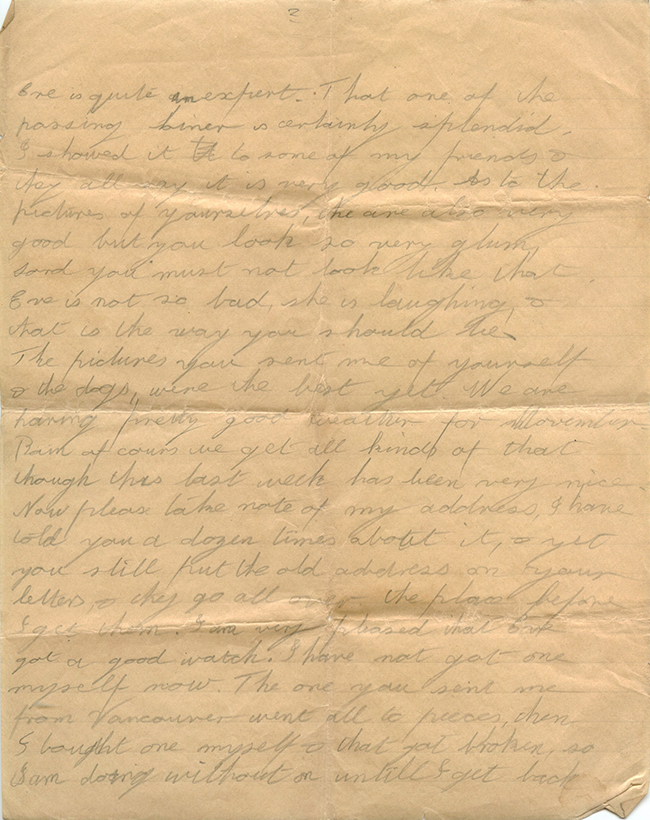 2
Eve is quite an expert. That one of the
passing liner is certainly splendid.
I showed it to some of my friends &
they all say it is very good. As to the
pictures of yourselves, the are also very
good but you look so very glum,
you must not look like that.
Eve is not so bad, she is laughing, &
that is the way you should be.
The pictures you sent me of yourself
& the dogs, were the best yet. We are
having pretty good weather for November.
Rain of cours we get all kinds of that
though this last week has been very nice.
Now pleas take note of my address, I have
told you a dozen times about it, & yet
you still put the old address on your
letters, & they go all over the place before
I get them. I am very pleased that Eve
got a good watch. I have not got one
myself now. The one you sent me
from Vancouver went all to pieces, then
I bought one myself & that got broken, so
I am doing without on untill I get back